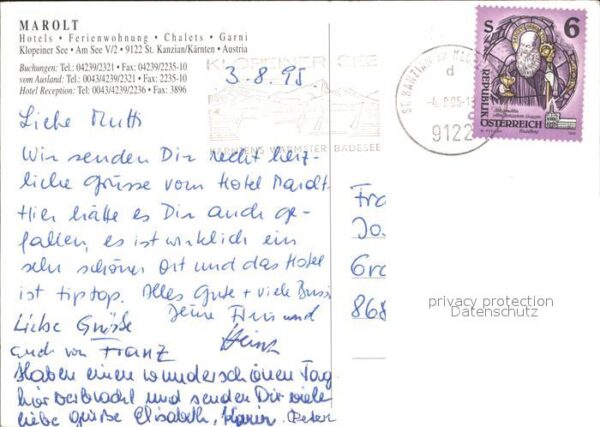 MAROLT
Hotels • Ferienwohnung • Chalets • Garni
Klopeiner See • Am See V/2 • 9122 St. Kanzian/Kärnten • Austria
Buchungen: Tel.: 04239/2321 • Fax: 04239/2235-10
vom Ausland: Tel.: 0043/4239/2321 • Fax: 2235-10
Hotel Reception: Tel.: 0043/4239/2236 • Fax: 3896
KLOPEINER SEE
KÄRNTENS WÄRMSTER BADESEE
ST. KANZIAN
d
9122
S 6
REPUBLIK
ÖSTERREICH
3.8.95
Liebe Mutti
Wir senden Dir recht herz-
liche Grüsse vom Hotel Marolt.
Hier hätte es Dir auch ge-
fallen, es ist wirklich ein
sehr schöner Ort und das Hotel
ist tiptop. Alles Gute + viele Bussi
Deine und
Heinz
Liebe Grüße
auch von Franz
Haben einen wunderschönen Tag
hier verbracht und senden Dir viele
liebe Grüße Elisabeth, Karin, Peter
Fra
Jo
Gra
868
privacy protection
Datenschutz